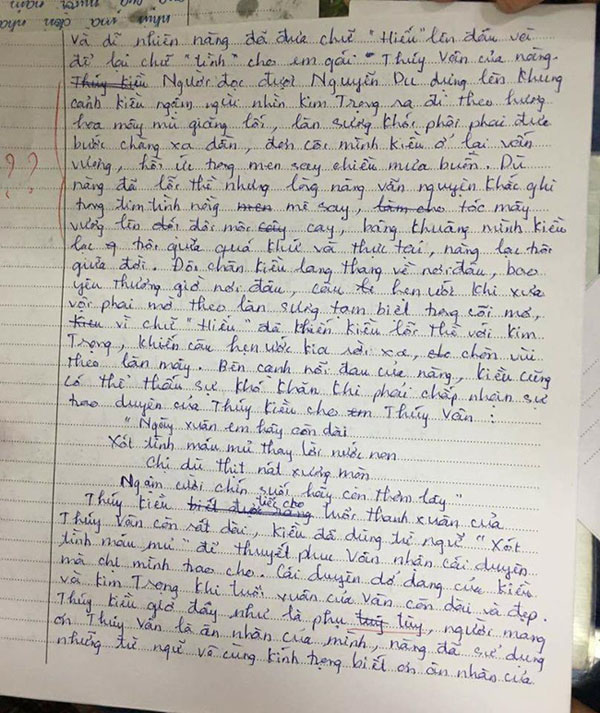 như ma điện nhà
và dĩ nhiên nàng đã đưa chữ "Hiếu" lên đầu và
để lại chữ "tình" cho em gái - Thúy Vân của nàng.
Thúy Kiều Người đọc được Nguyễn Du dựng lên khung
cảnh kiều ngậm ngùi nhìn Kim Trọng ra đi theo hướng
hoa mây mù giăng lối, làn sương khói phôi phai đưa
bước chàng xa dần, đơn côi mình kiều ở lại vấn
vương, hồi ức trong men say chiều mưa buồn. Dù
nàng đã lỗi thề nhưng lòng nàng vẫn nguyên khắc ghi
trong tim tình nồng men mê say, làm cho tóc mây
vương lên đôi môi cay, bâng khuâng mình kiều
lạc trôi giữa quá khứ và thực tại, nàng lạc trôi
giữa đời. Đôi chân kiều lang thang về nơi đâu, bao
yêu thương giờ nơi đâu, câu hẹn ước khi xưa
vội phai mờ theo làn sương tam biệt trong cõi mơ,
Kiều vì chữ "Hiếu" đã khiến kiều lỗi thề với Kim
Trọng, khiến câu hẹn ước kia rời xa, chôn vùi
theo làn mây. Bên cạnh nỗi đau của nàng, kiều cũng
có thể thấu sự khó khăn khi phải chấp nhận sự
trao duyên của Thúy Kiều cho em Thúy Vân :
"Ngày xuân em hãy còn dài
Xót tình máu mủ thay lời nước non
Chị dù thịt nát xương mòn
Ngậm cười chín suối hãy còn thơm lây"
Thúy Kiều biết được rằng tiếc cho tuổi thanh xuân của
Thúy Vân còn rất dài, kiều đã dùng từ ngữ "Xót
tình máu mủ" để thuyết phục Vân nhận cái duyên
mà chị mình trao cho. Cái duyên dở dang của kiều
và Kim Trọng khi tuổi xuân của Vân còn dài và đẹp.
Thúy Kiều giờ đây như là phụ tuỳ tùy, người mang
ơn Thúy Vân là ân nhân của mình, nàng đã sử dụng
những từ ngữ vô cùng kính trọng biết ơn ân nhân của
??